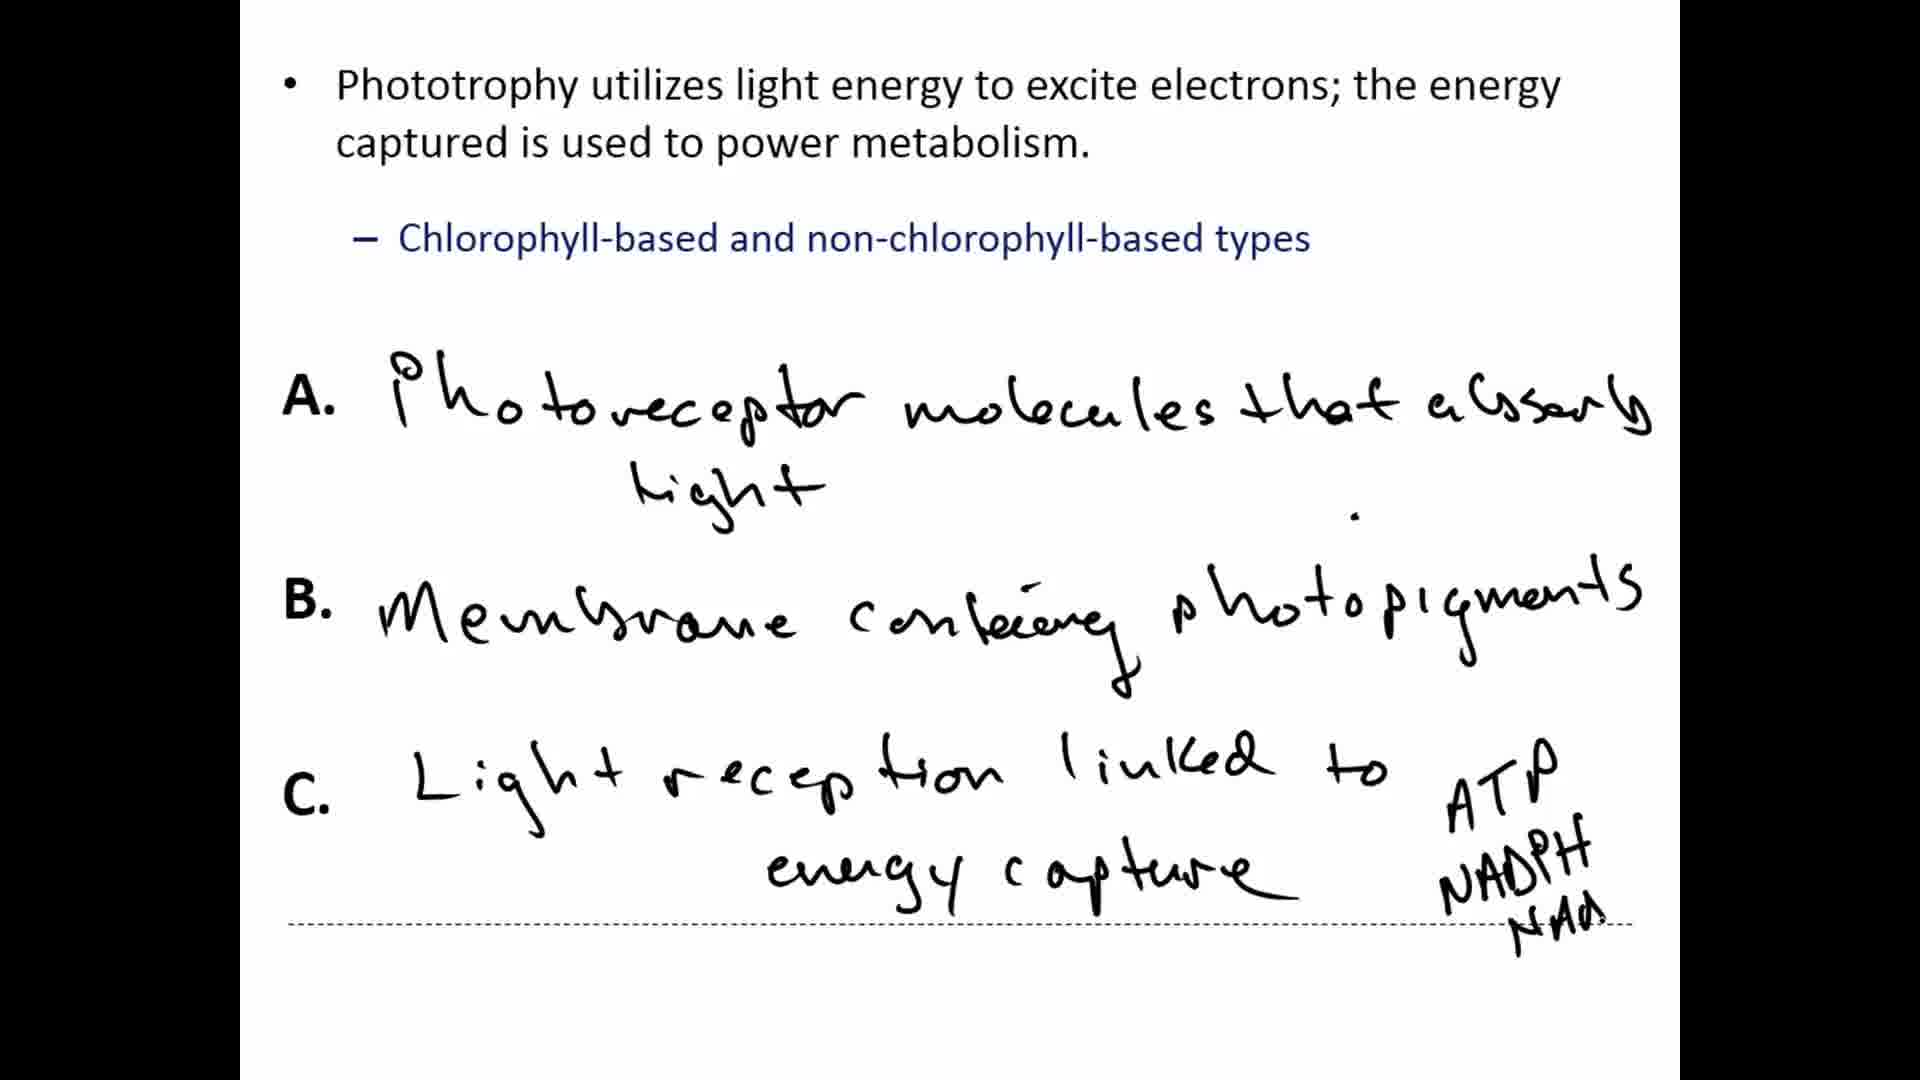 • Phototrophy utilizes light energy to excite electrons; the energy
captured is used to power metabolism.
– Chlorophyll-based and non-chlorophyll-based types
A. Photoreceptor molecules that absorb
light
B. Membrane containing photopigments
C. Light reception linked to ATP
energy capture NADPH
NAD